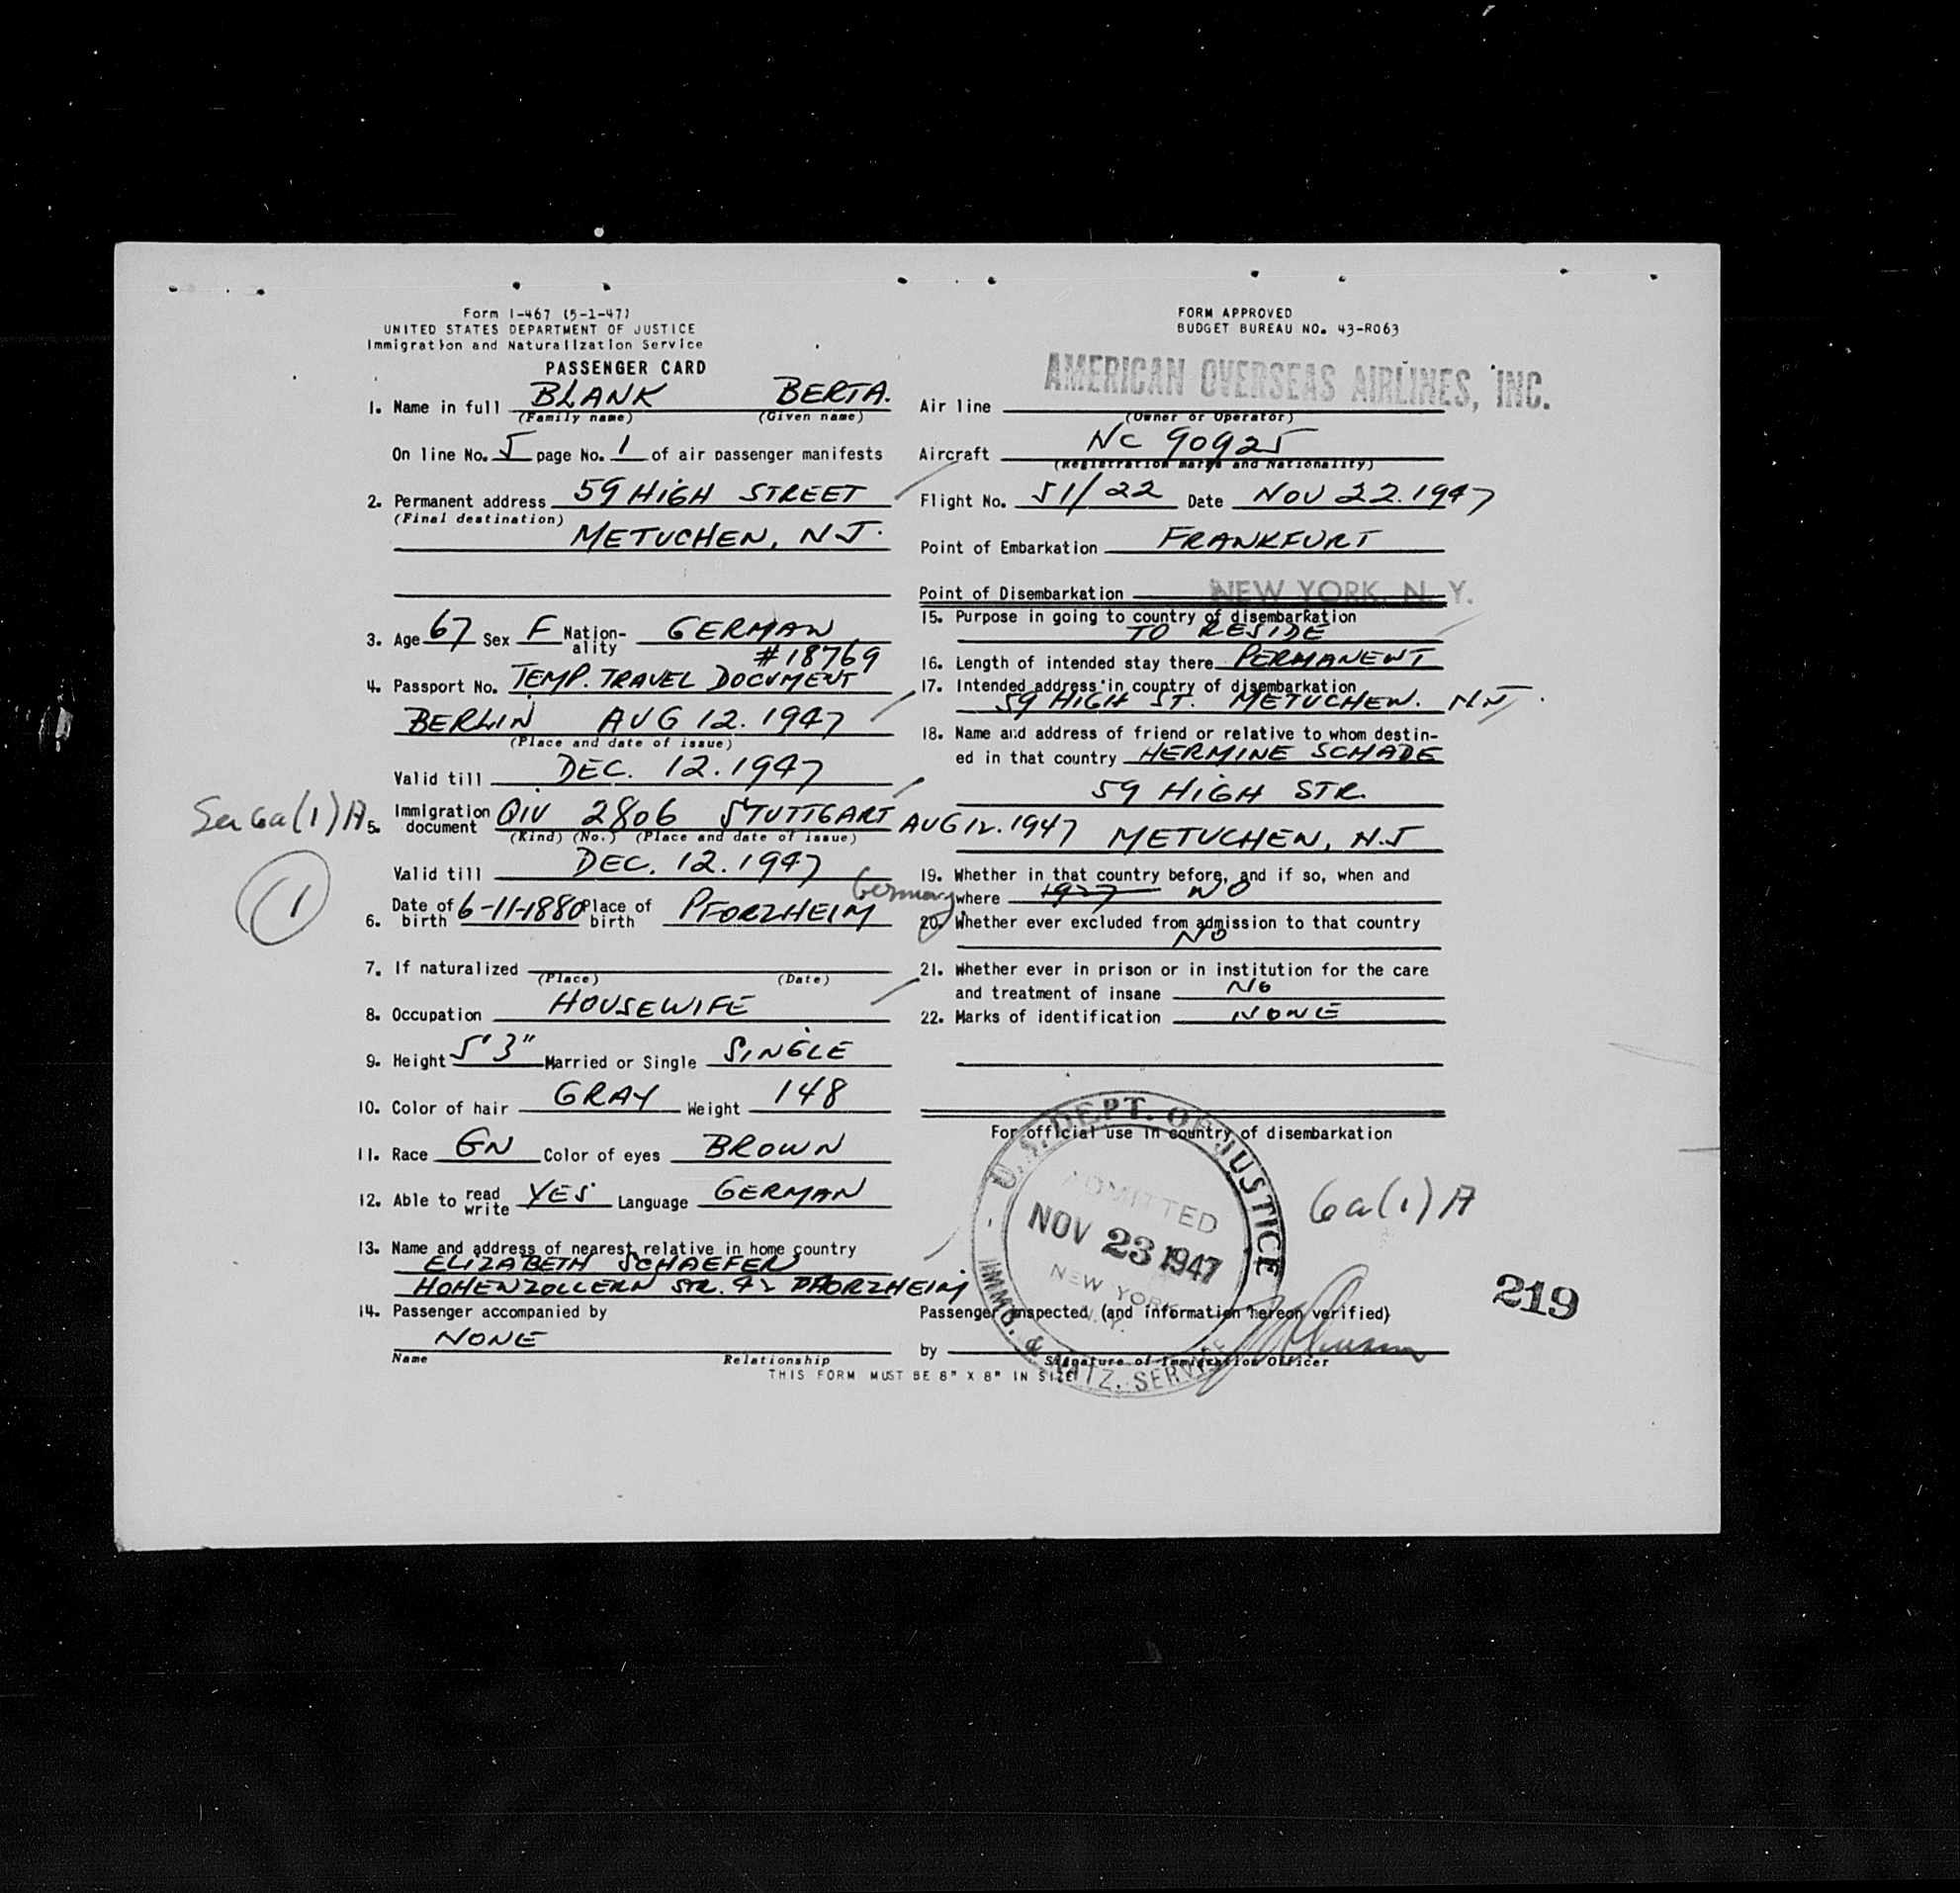 Form I-467 (5-1-47)
UNITED STATES DEPARTMENT OF JUSTICE
Immigration and Naturalization Service
PASSENGER CARD
1. Name in full BLANK BERTA.
(Family name) (Given name)
On line No. 5 page No. 1 of air passenger manifests
2. Permanent address 59 HIGH STREET
(Final destination)
METUCHEN, N.J.
3. Age 67 Sex F Nationality GERMAN
#18769
4. Passport No. TEMP. TRAVEL DOCUMENT
BERLIN AUG 12. 1947
(Place and date of issue)
Valid till DEC. 12. 1947
6a(1)A
5. Immigration document QIV 2806 STUTTGART AUG 12. 1947
(Kind) (No.) (Place and date of issue)
Valid till DEC. 12. 1947
1
6. Date of birth 6-11-1880 Place of birth PFORZHEIM Germany
7. If naturalized
(Place) (Date)
8. Occupation HOUSEWIFE
9. Height 5'3" Married or Single SINGLE
10. Color of hair GRAY Weight 148
11. Race GN Color of eyes BROWN
12. Able to read write YES Language GERMAN
13. Name and address of nearest relative in home country
ELIZABETH SCHAEFER
HOHENZOLLERN STR. PFORZHEIM
14. Passenger accompanied by
NONE
Name Relationship
THIS FORM MUST BE 8" X 8" IN SIZE
FORM APPROVED
BUDGET BUREAU NO. 43-R063
AMERICAN OVERSEAS AIRLINES, INC.
Air line
(Owner or Operator)
Aircraft NC 90925
(Registration marks and Nationality)
Flight No. 51/22 Date NOV 22. 1947
Point of Embarkation FRANKFURT
Point of Disembarkation NEW YORK, N. Y.
15. Purpose in going to country of disembarkation
TO RESIDE
16. Length of intended stay there PERMANENT
17. Intended address in country of disembarkation
59 HIGH ST. METUCHEN. N.J.
18. Name and address of friend or relative to whom destin-
ed in that country HERMINE SCHADE
59 HIGH STR.
METUCHEN, N.J
19. Whether in that country before, and if so, when and
where 1927 NO
20. Whether ever excluded from admission to that country
NO
21. Whether ever in prison or in institution for the care
and treatment of insane NO
22. Marks of identification NONE
For official use in country of disembarkation
U.S. DEPT. OF JUSTICE
ADMITTED
NOV 23 1947
NEW YORK
N.Y.
IMMG. & NATZ. SERVICE
6a(1)A
219
Passenger inspected (and information hereon verified)
by
Signature of Immigration Officer